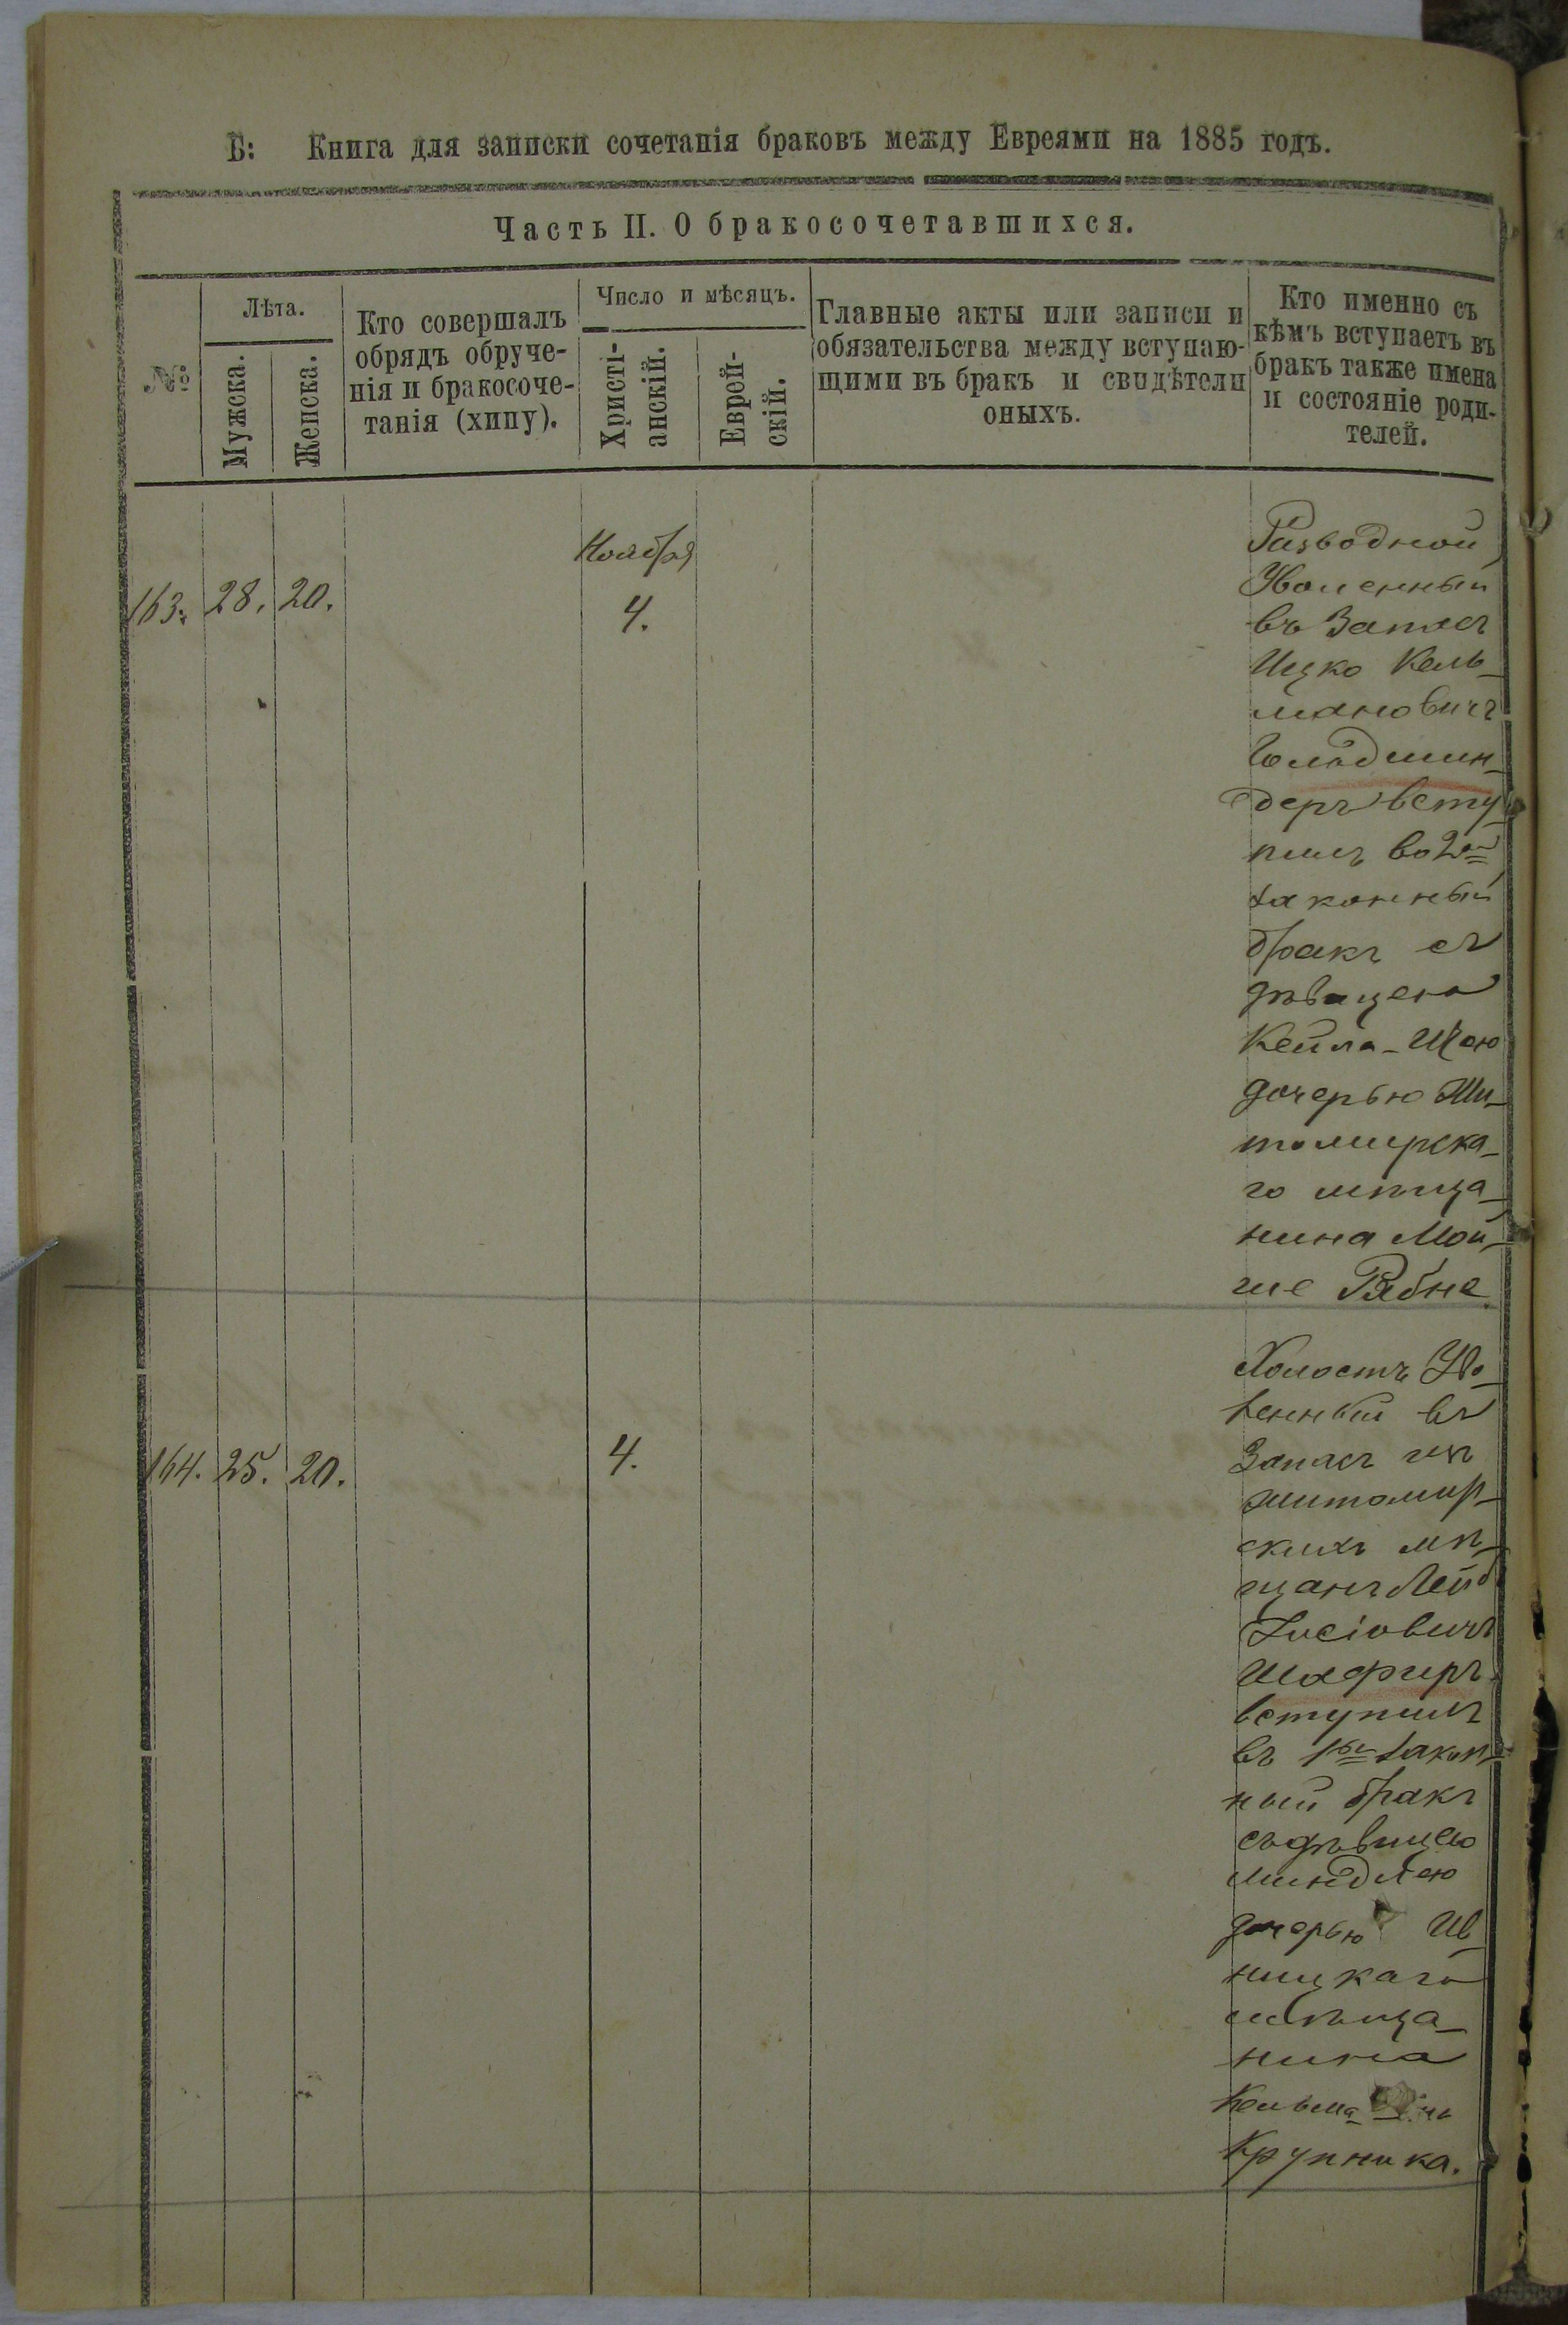 Б: Книга для записки сочетанія браковъ между Евреями на 1885 годъ.
Часть II. О бракосочетавшихся.
№
Лѣта.
Мужска.
Женска.
Кто совершалъ
обрядъ обруче-
нія и бракосоче-
танія (хипу).
Число и мѣсяцъ.
Христі-
анскій.
Еврей-
скій.
Главные акты или записи и
обязательства между вступаю-
щими въ бракъ и свидѣтели
оныхъ.
Кто именно съ
кѣмъ вступаетъ въ
бракъ также имена
и состояніе роди-
телей.
Ноября
163. 28. 20. 4.
Разводной
Уволенный
въ Запасъ
Ицко Кель-
мановичъ
Гольдшин-
деръ всту-
пилъ во 2ой
законный
бракъ съ
дѣвицею
Кейла-
дочерью Жи-
томирска-
го мѣща-
нина Мой-
ше Рабне
164. 25. 20. 4.
Холостъ Уво-
ленный въ
Запасъ изъ
житомир-
скихъ мѣ-
щанъ Лейб
Іосіовичъ
Шафиръ
вступилъ
въ 1ый закон-
ный бракъ
съ дѣвицею
Миндлею
дочерью Ив-
ницкаго
мѣща-
нина
Кельма
Крупника.